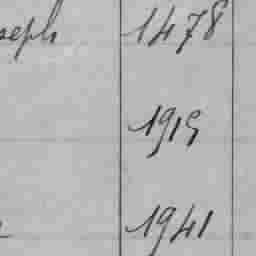 seph 1478
1919
1941